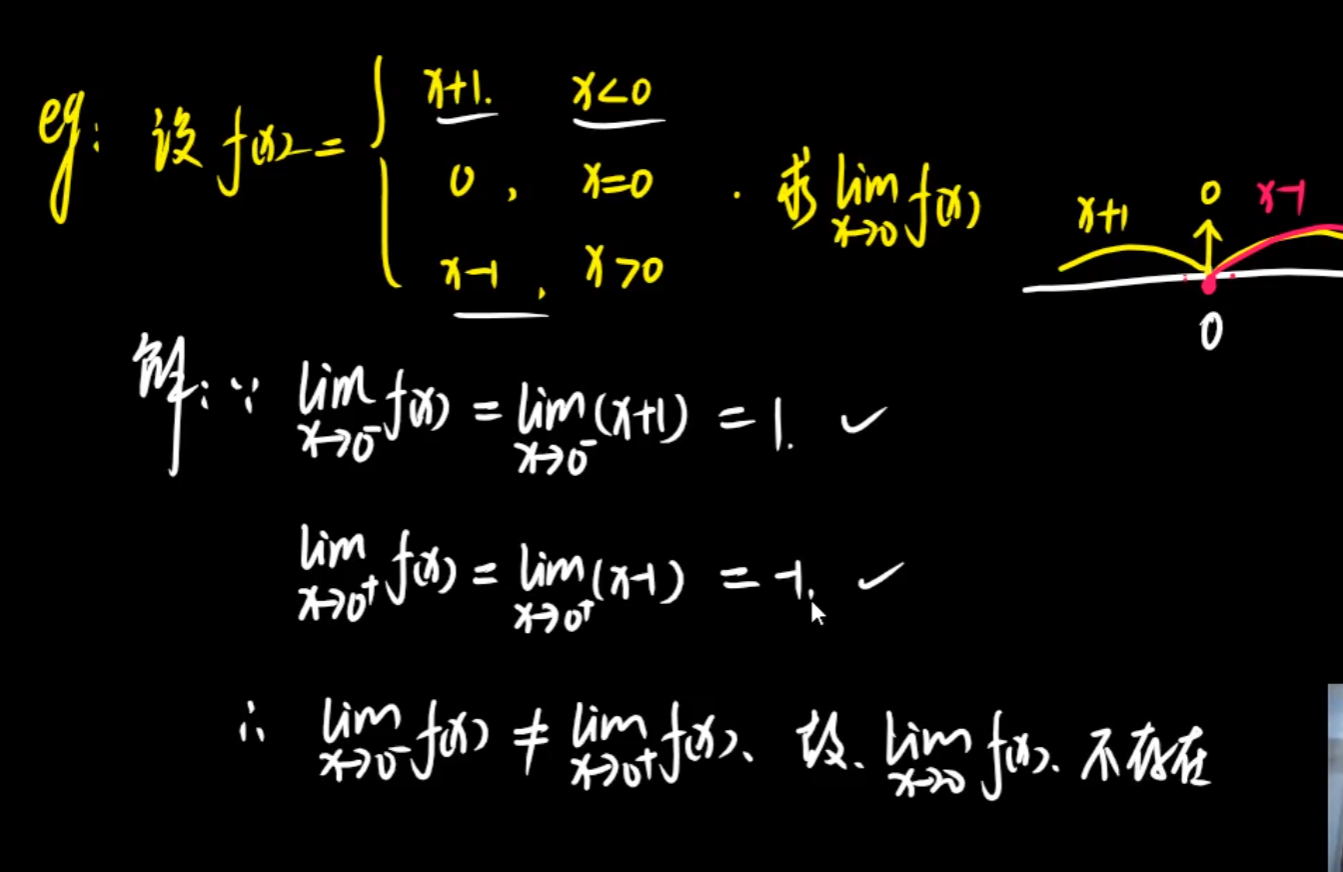 eg: 设 f(x) = { x+1. x<0
0 , x=0 . 求 lim x→0 f(x)
x-1 , x>0
x+1 0 x-1
0
解: ∵ lim x→0⁻ f(x) = lim x→0⁻ (x+1) = 1. ✓
lim x→0⁺ f(x) = lim x→0⁺ (x-1) = -1. ✓
∴ lim x→0⁻ f(x) ≠ lim x→0⁺ f(x)、 故、 lim x→0 f(x)、 不存在